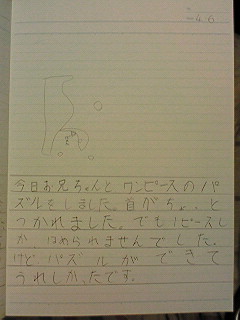 今日お兄ちゃんと ワンピースのパ
ズルをしました。首がちょっと
つかれました。でも1ピースし
か、はめられませんでした。
けど パズルが できて
うれしかったです。